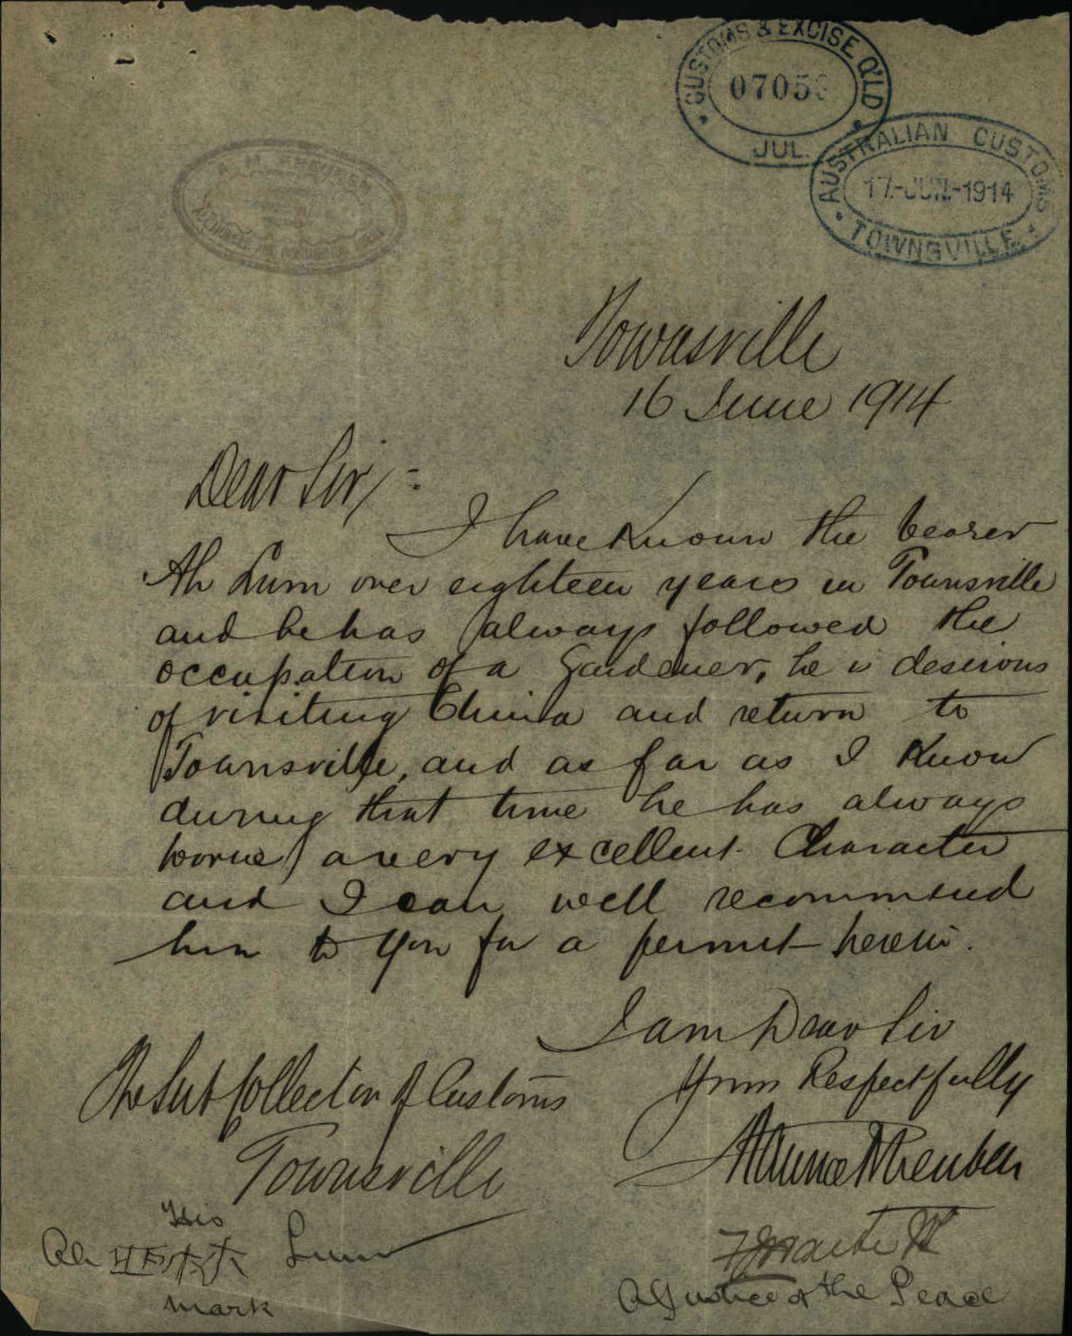 CUSTOMS & EXCISE Q'LD
0705
JUL
AUSTRALIAN CUSTOMS
17-JUN-1914
TOWNSVILLE
Townsville
16 June 1914
Dear Sir/-:
I have known the bearer
Ah Lum over eighteen years in Townsville
and he has always followed the
occupation of a Gardener, he is desirous
of visiting China and return to
Townsville, and as far as I know
during that time he has always
borne a very excellent Character
and I can well recommend
him to you for a permit herein.
I am Dear Sir
Yours Respectfully
The Sub Collector of Customs
Townsville
Reuben
His
Ah Lum
mark
A Justice of the Peace